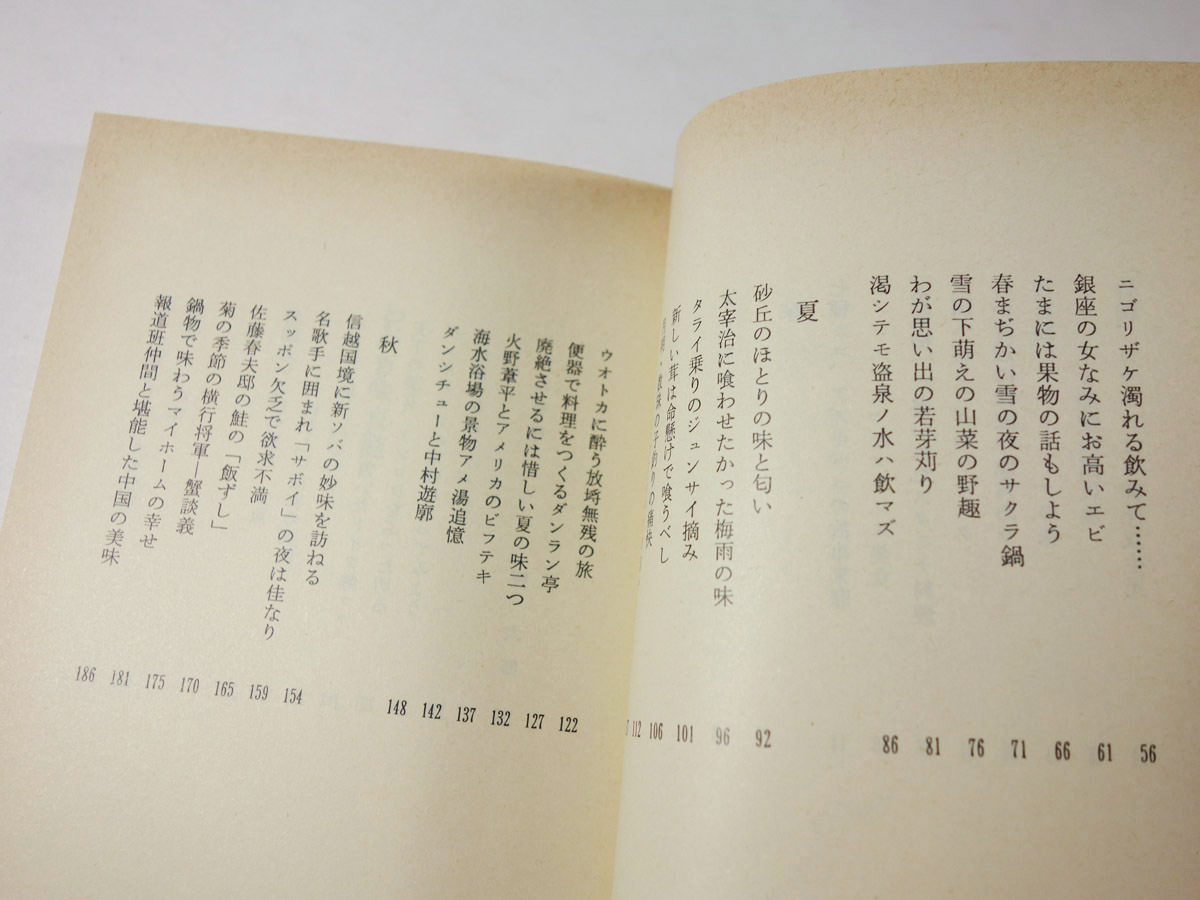 ニゴリザケ濁れる飲みて…… 56
銀座の女なみにお高いエビ 61
たまには果物の話もしよう 66
春まぢかい雪の夜のサクラ鍋 71
雪の下萌えの山菜の野趣 76
わが思い出の若芽刈り 81
渇シテモ盗泉ノ水ハ飲マズ 86
夏
砂丘のほとりの味と匂い 92
太宰治に喰わせたかった梅雨の味 96
タライ乗りのジュンサイ摘み 101
新しい茸は命懸けで喰うべし 106
釣りの痛快 112
ウオトカに酔う放埓無残の旅 122
便器で料理をつくるダンラン亭 127
廃絶させるには惜しい夏の味二つ 132
火野葦平とアメリカのビフテキ 137
海水浴場の景物アメ湯追憶 142
ダンシチューと中村遊廓 148
秋
信越国境に新ソバの妙味を訪ねる 154
名歌手に囲まれ「サボイ」の夜は佳なり 159
スッポン欠乏で欲求不満 165
佐藤春夫邸の鮭の「飯ずし」 170
菊の季節の横行将軍―蟹談義 175
鍋物で味わうマイホームの幸せ 181
報道班仲間と堪能した中国の美味 186